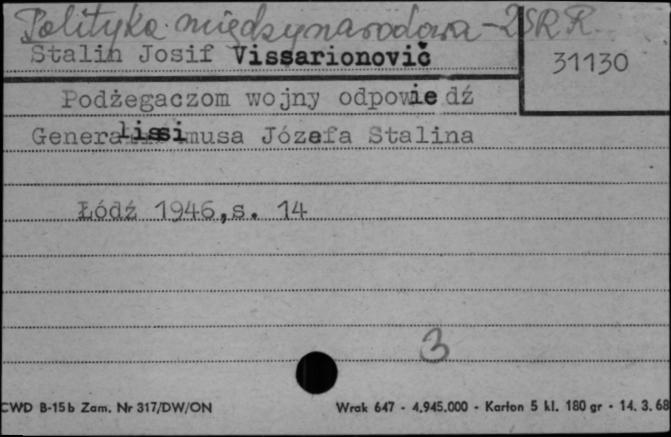 Polityka międzynarodowa - ZSRR.
Stalin Josif Vissarionovič
31130
Podżegaczom wojny odpowiedź
Generalissimusa Józefa Stalina
Łódź 1946, s. 14
3
CWD B-15b Zam. Nr 317/DW/ON
Wrak 647 - 4.945.000 - Karton 5 kl. 180 gr - 14. 3. 68